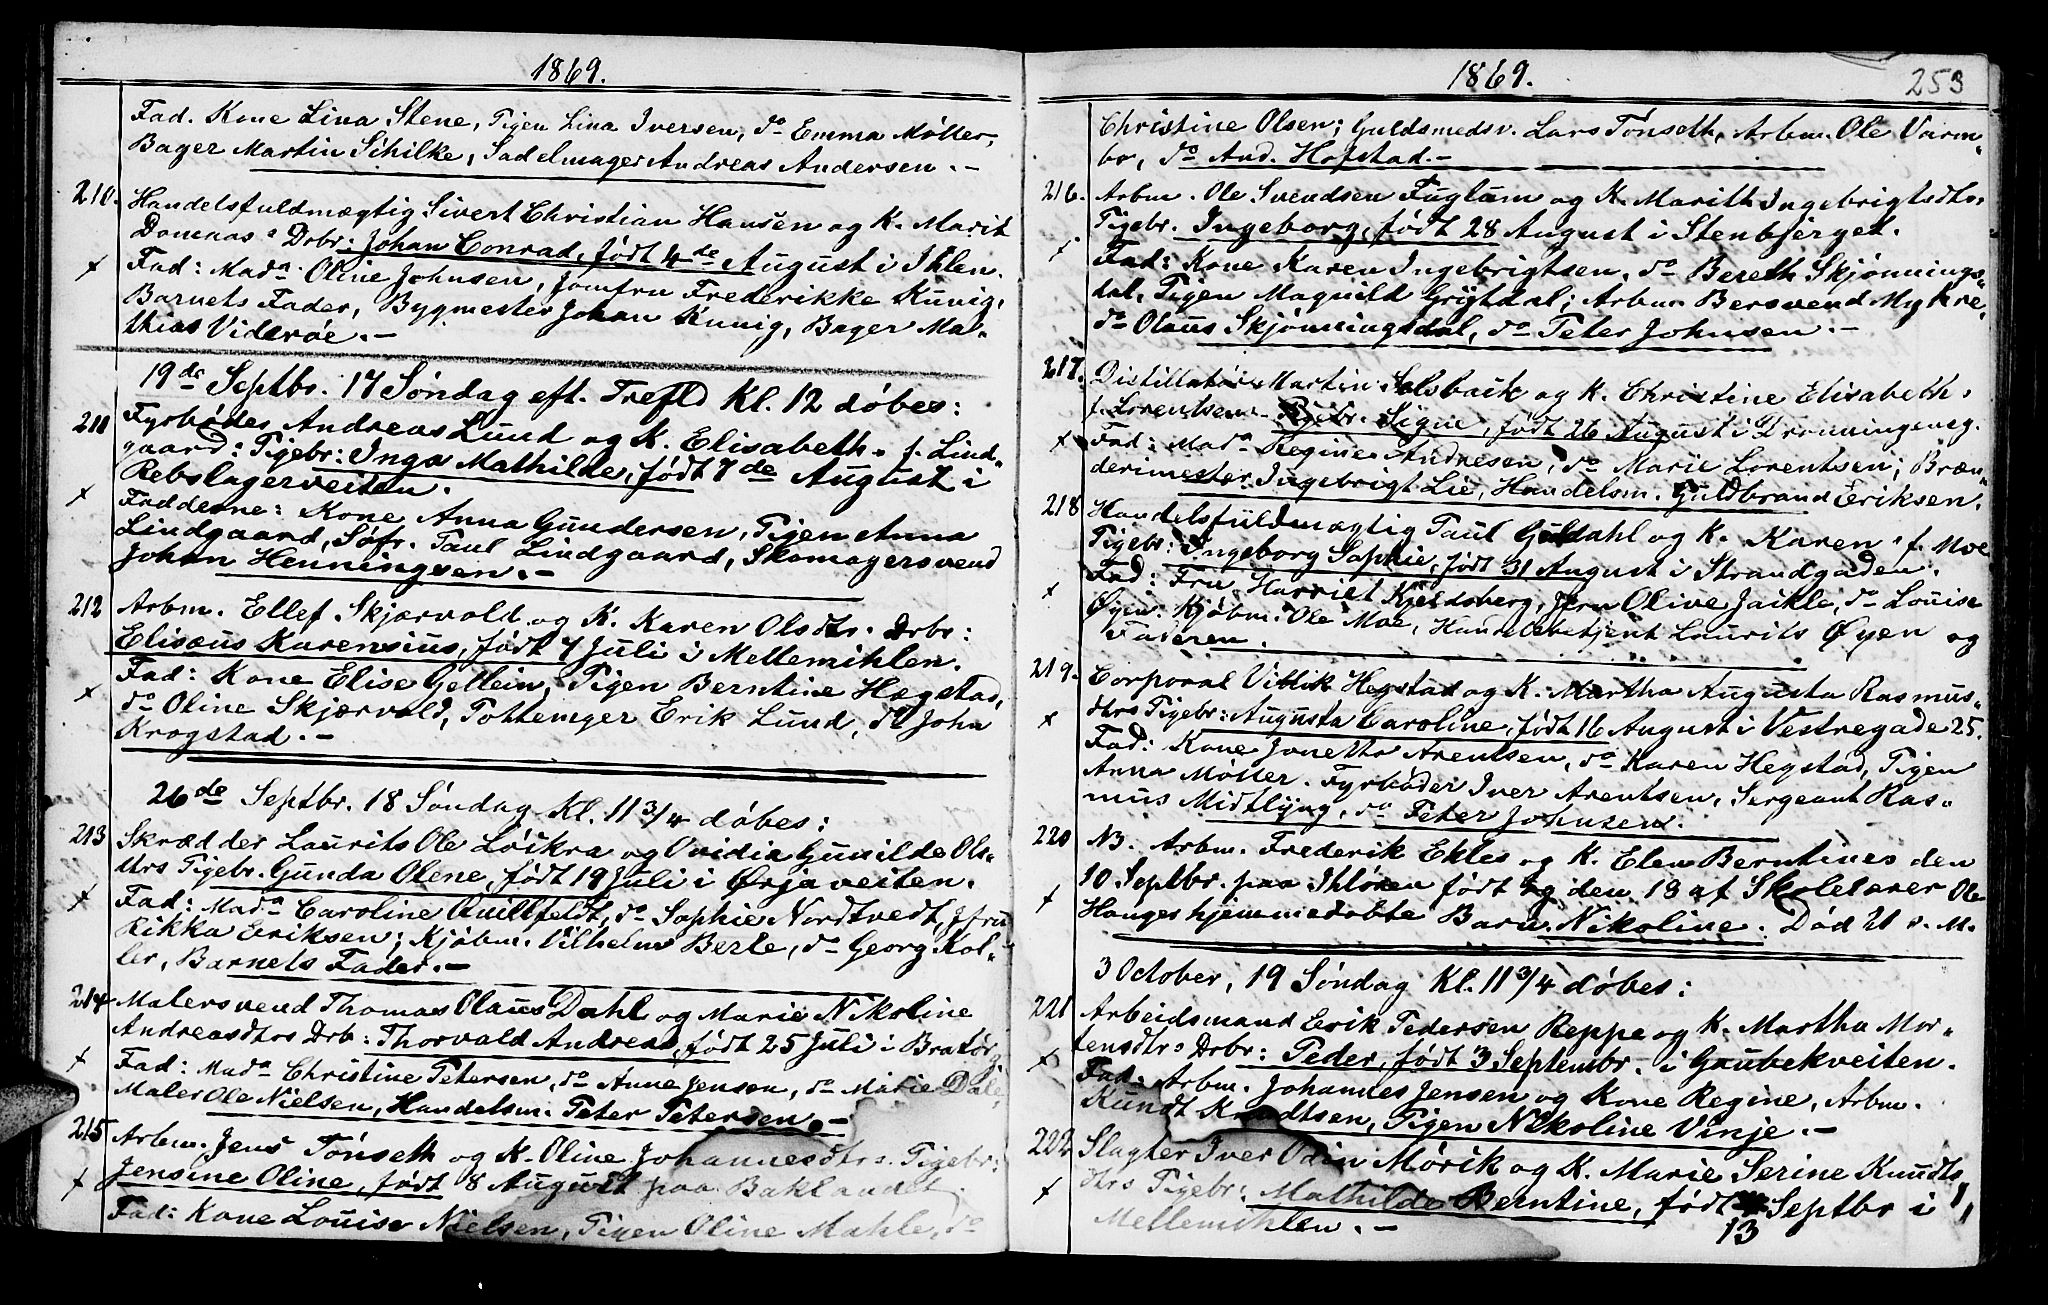 1869.
Fad. Kone Lina Stene, Tigen Lina Iversen, do Emma Møller,
Bager Martin Schilke, Sadelmager Andreas Andersen. -
210. Handelsfuldmægtig Sivert Christian Hansen og K. Marit
Domnas Drbr: Johan Conrad, født 4de August i Ihlen.
x Fad: Mada Oline Johnsen, Jomfru Frederikke Kunig,
Barnets Fader, Bygmester Johan Kunig, Bager Ma-
thias Viderøe. -
19de Septbr. 17 Søndag eft. Trefld Kl. 12 døbes:
211 Fyrbøder Andreas Lund og K. Elisabeth f. Lind-
gaard: Tigebr: Inga Mathilde, født 7de August i
Rebslagerveiten.
x Fadderne: Kone Anna Gundersen, Tigen Anna
Lindgaard, Søfr. Paul Lindgaard, Skomagersvend
Johan Henningsen. -
212 Arbm. Ellef Skjærvold og K. Karen Olsdtr. Drbr:
Elisæus Karensius, født 7 Juli i Mellemihlen.
x Fad: Kone Elise Gellein, Tigen Berntine Hægstad,
do Oline Skjærvold, Pottemger Erik Lund, do John
Krogstad. -
26de Septbr. 18 Søndag Kl. 11 3/4 døbes:
213 Skrædder Laurits Ole Løikra og Ovidia Gunilde Ols-
dtrs Tigebr. Gunda Olene, født 19 Juli i Ørjaveiten.
x Fad: Mada Caroline Quillfeldt, do Sophie Nordtvedt, Jfru
Rikka Eriksen; Kjøbm. Vilhelm Berle, do Georg Kol-
ler, Barnets Fader. -
214 Malersvend Thomas Olaus Dahl og Marie Nikoline
Andreasdtrs Drb: Thorvald Andreas, født 25 Juli i Bratørg.
x Fad: Mada Christine Petersen, do Anne Jensen, do Marie Dale,
Maler Ole Nielsen, Handelsm. Peter Petersen. -
215 Arbm. Jens Tønseth og K. Oline Johannesdtrs. Tigebr:
x Jensine Oline, født 8 August paa Baklandet.
Fad: Kone Louise Nielsen, Tigen Oline Mahle, do
1869.
253
Christine Olsen; Guldsmedsv. Lars Tønseth, Arbm. Ole Varm-
bo, do And. Hofstad. -
216. Arbm. Ole Svendsen Fuglum og K. Marith Ingebrigtsdtrs
Tigebr. Ingeborg, født 28 August i Stenbjerget.
x Fad: Kone Karen Ingebrigtsen, do Bereth Skjønnings-
dal, Tigen Magnild Grytdal; Arbm. Bersvend Myhre,
do Olaus Skjønningsdal, do Peter Johnsen. -
217. Distillatør Martin Solsbaik og K. Christine Elisabeth
f. Lorentsen Tigebr. Signe, født 26 August i Dronningensg.
x Fad: Mada Regine Andresen, do Marie Lorentsen; Bræn-
derimester Ingebrigt Lie, Handelsm. Guldbrand Eriksen.
218 Handelsfuldmægtig Paul Guldahl og K. Karen f. Moe
Tigebr: Ingeborg Sophie, født 31 August i Strandgaden.
x Fad: Fru Harriet Kjeldsberg, Jfru Olive Jaikle, do Louise
Øyen: Kjøbm. Ole Moe, Handelsbetjent Laurits Øyen og
Faderen.
219. Corporal Hegstad og K. Martha Augusta Rasmus-
x dtrs Tigebr: Augusta Caroline, født 16 August i Vestregade 25.
Fad: Kone Jonetta Arentsen, do Karen Hegstad, Tigen
Anna Møller. Fyrbøder Iver Arentsen, Sergeant Ras-
mus Midtlyng, do Peter Johnsen.
220 NB. Arbm. Frederik Ekles og K. Elen Berntines den
10 Septbr. paa Ihløren født og den 18 af Skolelærer Ole
x Hauges hjemmedøbte Barn Nikoline. Død 21 s. M.
3 October, 19 Søndag Kl. 11 3/4 døbes:
221 Arbeidsmand Erik Pedersen Reppe og K. Martha Mor-
tensdtrs Drbr: Peder, født 3 Septembr. i Gaubekveiten.
x Fad: Arbm. Johannes Jensen og Kone Regine, Arbm.
Kundt Knudtsen, Tigen Nikoline Vinje. -
222 Slagter Iver Odin Mørik og K. Marie Serine Knudts
x dtrs Tigebr: Mathilde Berntine, født 13 Septbr i
Mellemihlen. -